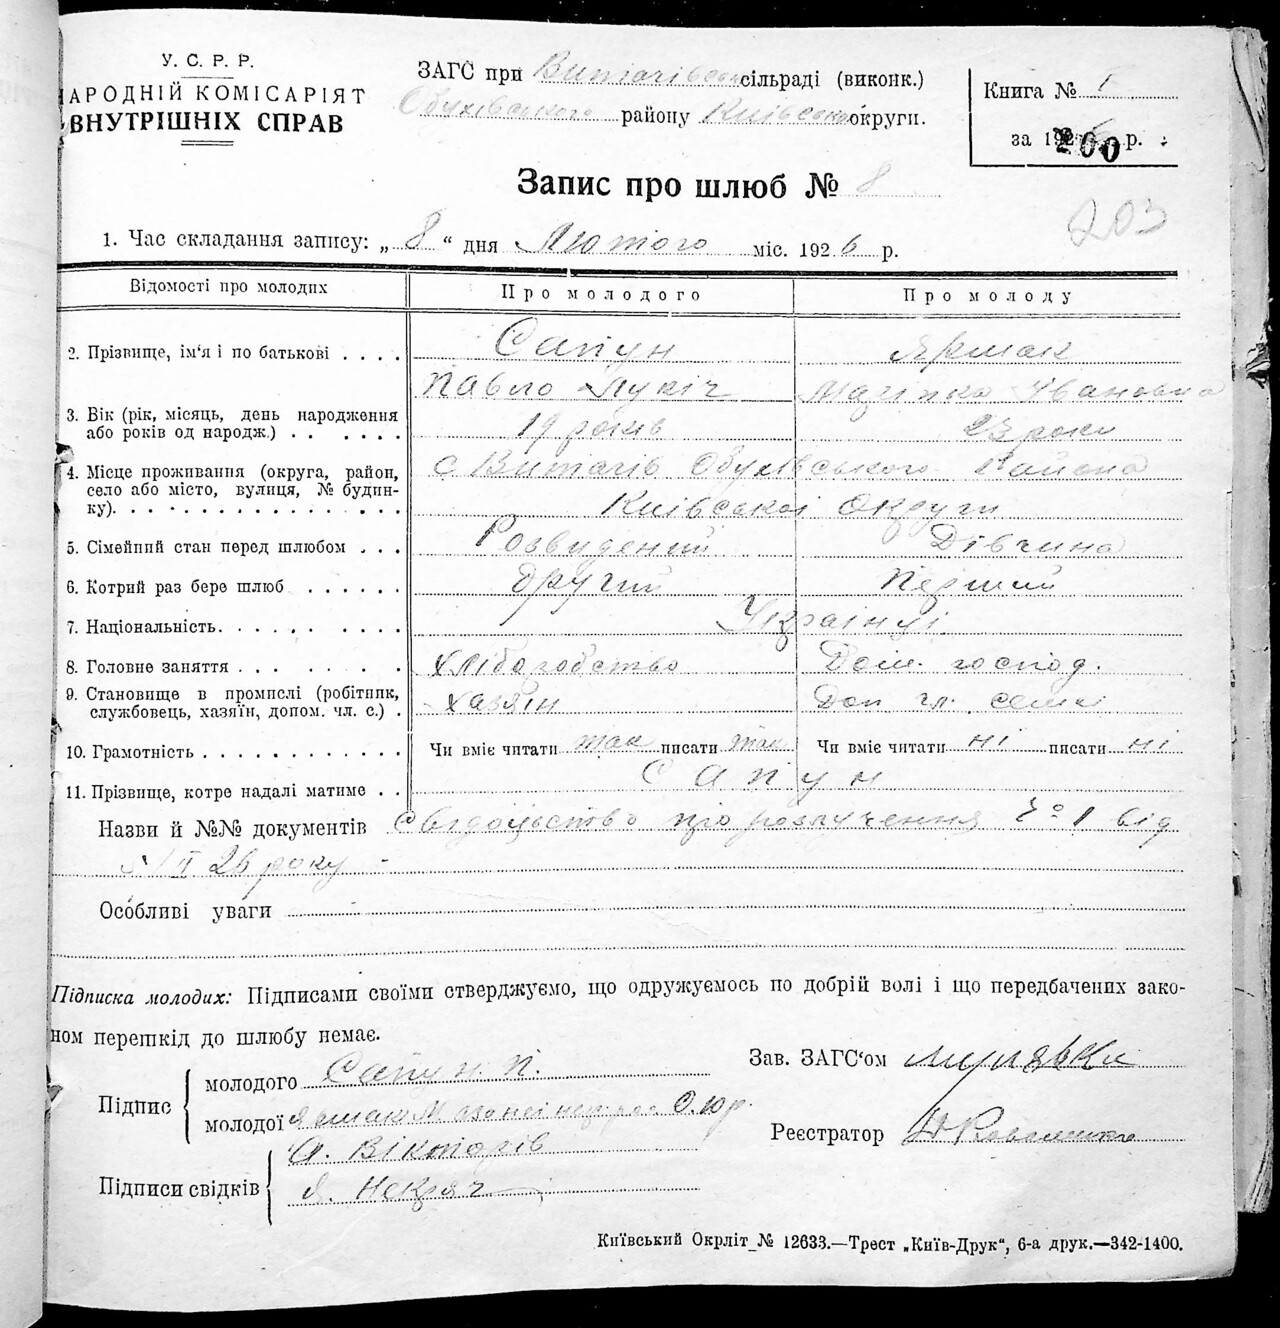 У. С. Р. Р.
НАРОДНІЙ КОМІСАРІЯТ
ВНУТРІШНІХ СПРАВ
ЗАГС при Витачівськ сільраді (виконк.)
Обухівського району Київської округи.
Книга № I
за 1926 р.
200
Запис про шлюб № 8
203
1. Час складання запису: „ 8 “ дня Лютого міс. 1926 р.
Відомості про молодих Про молодого Про молоду
2. Прізвище, ім'я і по батькові . . . . Сапун Ярмак
Павло Лукіч Івановна
3. Вік (рік, місяць, день народження
або років од народж.) . . . . . . . 19 років 23 роки
4. Місце проживання (округа, район, с Витачів Обухівського Района
село або місто, вулиця, № будин-
ку). . . . . . . . . . . . . . . Київської Округи
5. Сімейний стан перед шлюбом . . . Розведений Дівчина
6. Котрий раз бере шлюб . . . . . . другий Перший
7. Національність. . . . . . . . . . Українці
8. Головне заняття . . . . . . . . . хліборобство Дом. господ.
9. Становище в промислі (робітник,
службовець, хазяїн, допом. чл. с.) . хазяїн Доп чл. семі
10. Грамотність . . . . . . . . . . . Чи вміє читати так писати так Чи вміє читати ні писати ні
11. Прізвище, котре надалі матиме . . Сапун
Назви й №№ документів Свідоцьство про розлучення № 1 від
II 26 року
Особливі уваги
Підписка молодих: Підписами своїми стверджуємо, що одружуємось по добрій волі і що передбачених зако-
ном перешкід до шлюбу немає.
Підпис
молодого Сапун П.
молодої Ярмак М
Зав. ЗАГС'ом
Реєстратор
Підписи свідків
А. Вікторів
Я. Некряч
Київський Окрліт № 12633.—Трест „Київ-Друк“, 6-а друк.—342-1400.